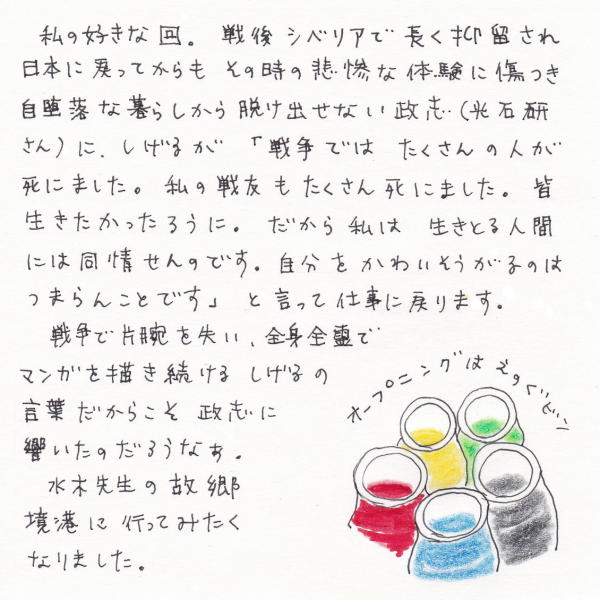 私の好きな回。 戦後シベリアで長く抑留され
日本に戻ってからも その時の悲惨な体験に傷つき
自堕落な暮らしから脱け出せない政志(光石研
さん)に、しげるが 「戦争では たくさんの人が
死にました。私の戦友もたくさん死にました。皆
生きたかったろうに。 だから私は 生きとる人間
には同情せんのです。自分をかわいそうがるのは
つまらんことです」 と言って仕事に戻ります。
戦争で片腕を失い、全身全霊で
マンガを描き続ける しげるの
言葉だからこそ 政志に
響いたのだろうなぁ。
水木先生の故郷
境港に行ってみたく
なりました。
オープニングは えのぐビン